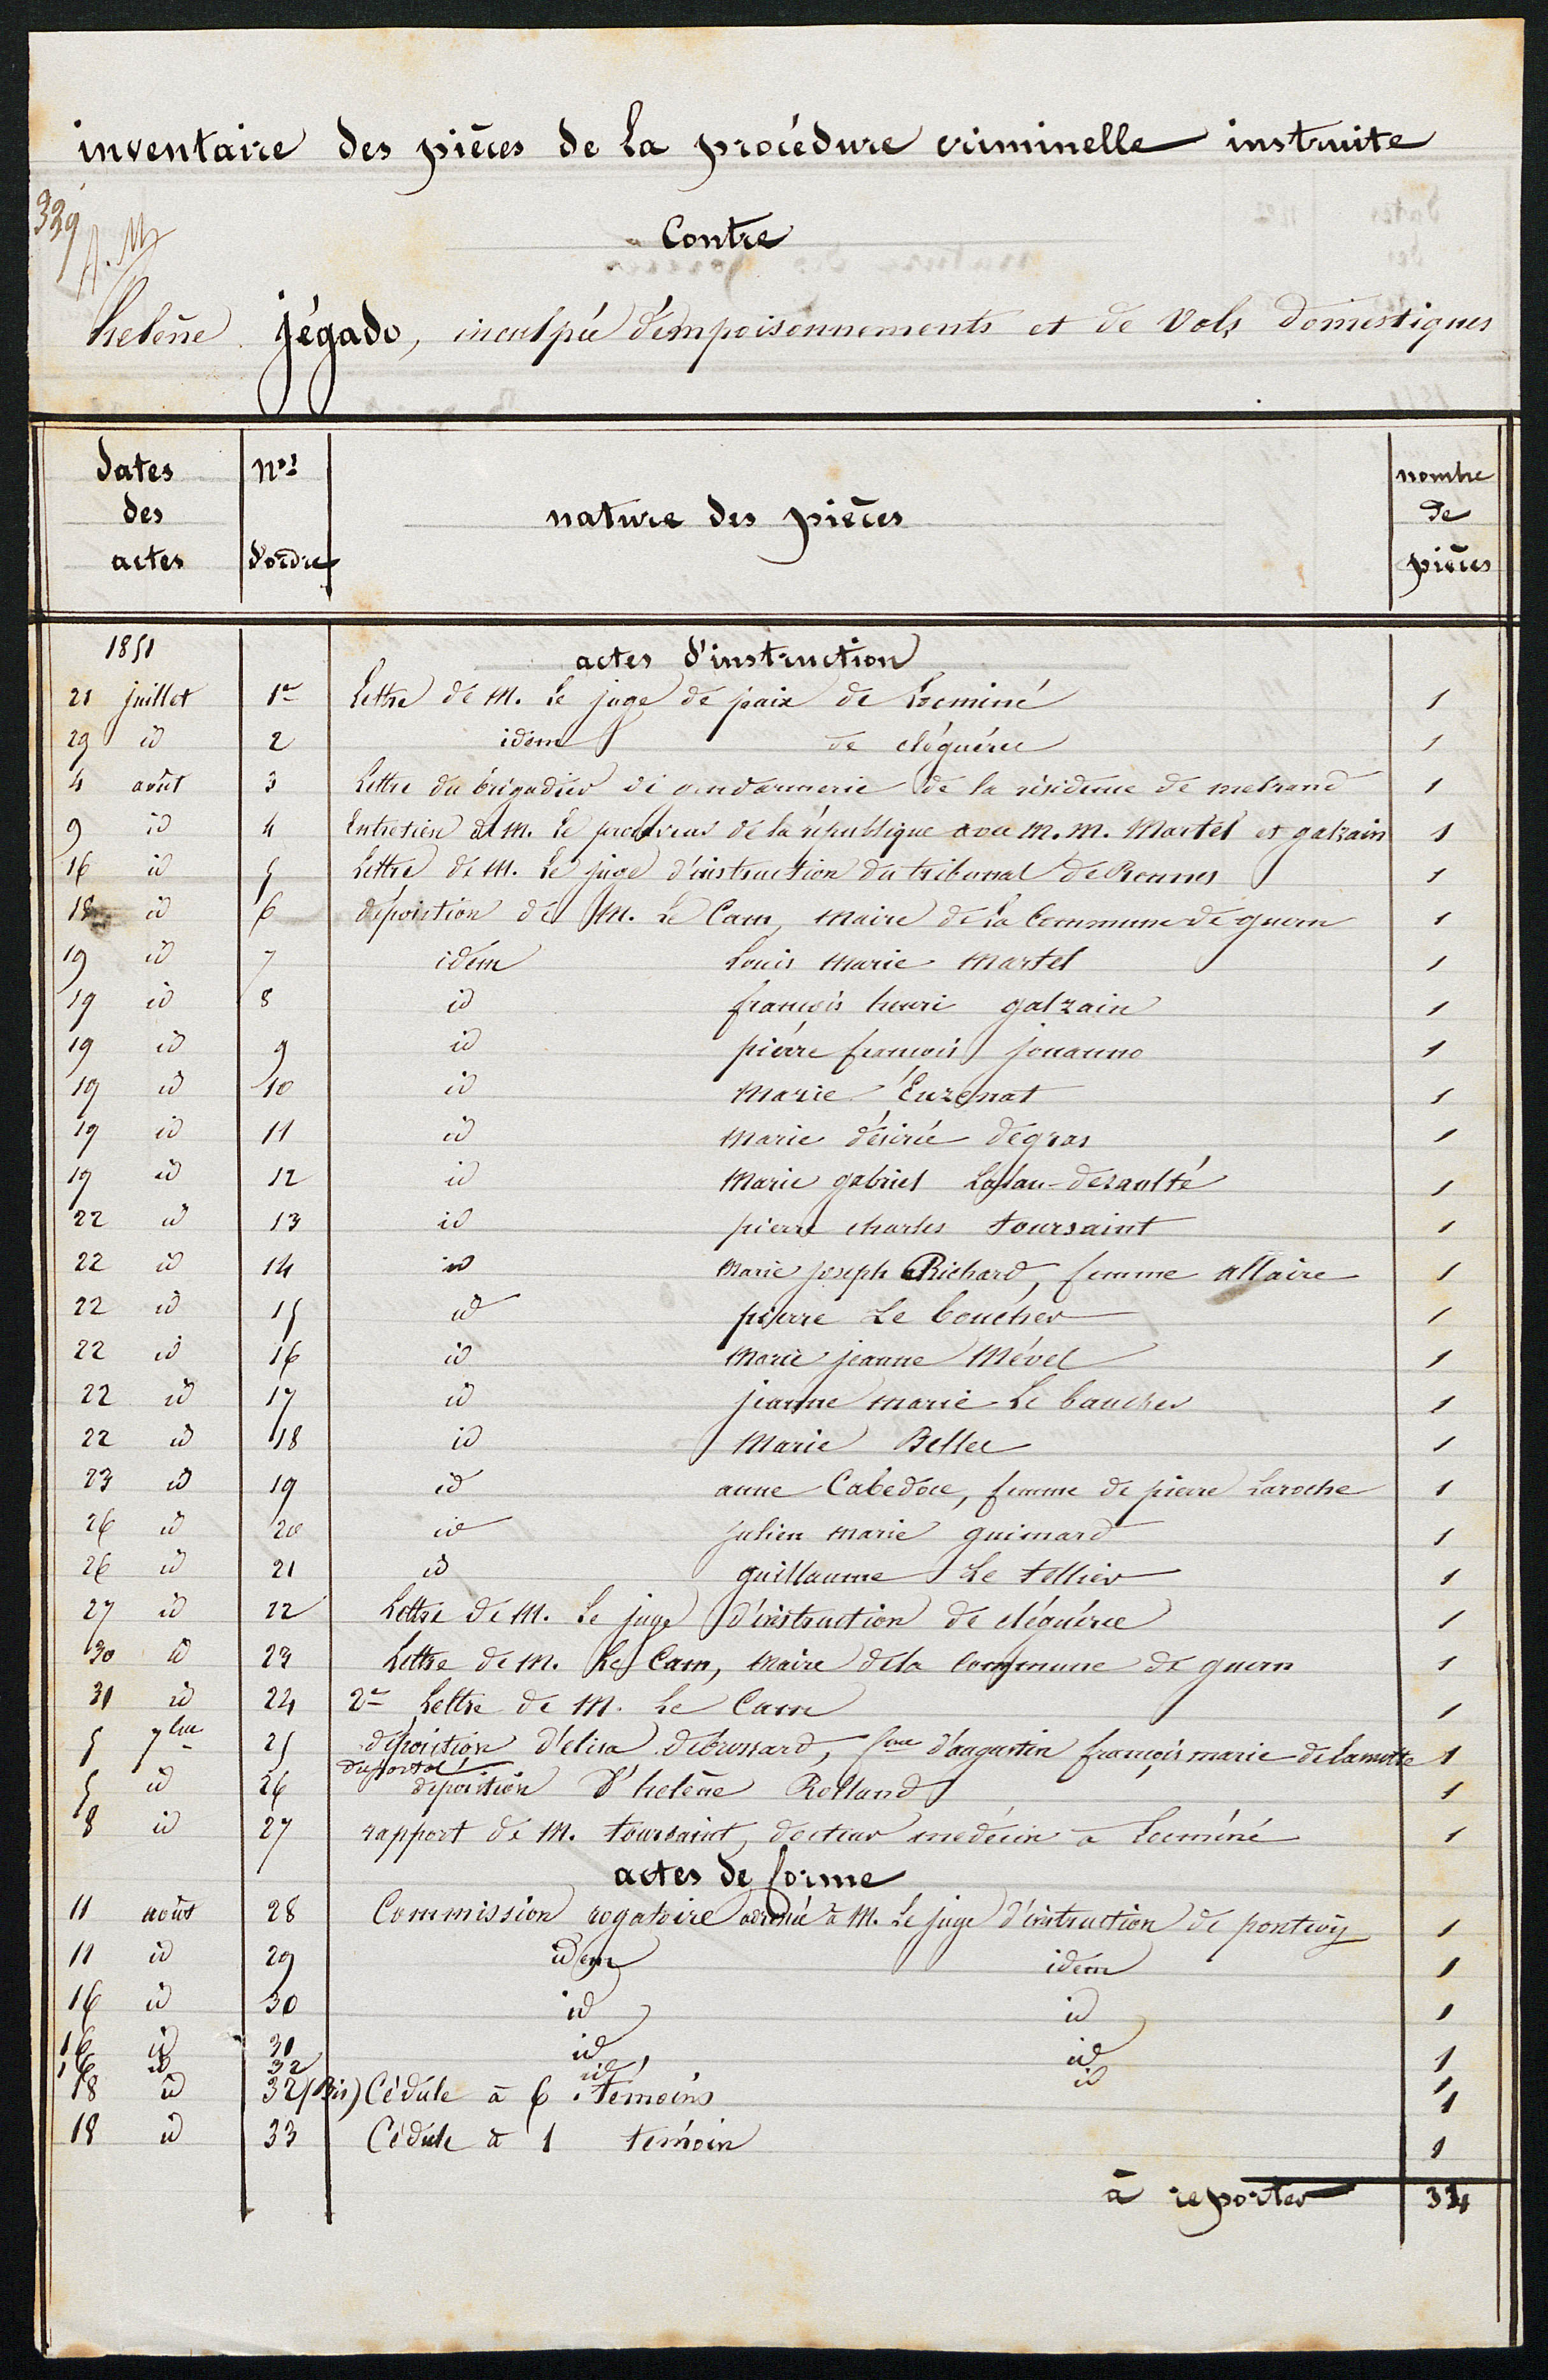 inventaire des pièces de la procédure criminelle instruite
339
A. M
Contre
helène jégado, inculpée d'empoisonnements et de Vols domestiques
dates des actes | nos d'ordre | nature des pièces | nombre de pièces
1851 actes d'instruction
21 juillet 1er Lettre de M. le juge de paix de Locminé 1
29 id 2 idem de cléguérec 1
4 août 3 Lettre du brigadier de gendarmerie de la résidence de melrand 1
9 id 4 Entretien de M. le procureur de la république avec M.M. Martel et galzain 1
16 id 5 Lettre de M. le juge d'instruction du tribunal de Rennes 1
18 id 6 déposition de M. Le Cam, maire de la Commune de guern 1
19 id 7 idem Louis marie martel 1
19 id 8 id françois henri galzain 1
19 id 9 id pierre françois jouanno 1
19 id 10 id marie Euzenat 1
19 id 11 id marie désirée dégras 1
19 id 12 id marie gabriel Lalau-dezaulté 1
22 id 13 id pierre charles toursaint 1
22 id 14 id marie joseph Richard, femme allaire 1
22 id 15 id pierre Le boucher 1
22 id 16 id marie jeanne Mével 1
22 id 17 id jeanne marie Le boucher 1
22 id 18 id Marie Bellec 1
23 id 19 id anne Cabedoce, femme de pierre Laroche 1
26 id 20 id julien marie guimard 1
26 id 21 id guillaume Le tellier 1
27 id 22 Lettre de M. le juge d'instruction de cléguérec 1
30 id 23 Lettre de M. Le Cam, maire de la commune de guern 1
31 id 24 2e Lettre de M. Le Cam 1
5 7bre 25 déposition d'elisa debrossard, fme d'augustin françois marie delamotte 1
duportal
5 id 26 déposition d'helène Rolland 1
8 id 27 rapport de M. toursaint, docteur médecin à Locminé 1
actes de forme
11 août 28 Commission rogatoire adressée à M. Le juge d'instruction de pontivy 1
11 id 29 idem idem 1
16 id 30 id id 1
16 id 31 id id 1
16 id 32 id id 1
18 id 32 (Bis) Cédule à 6 témoins 1
18 id 33 Cédule à 1 témoin 1
à reporter 34